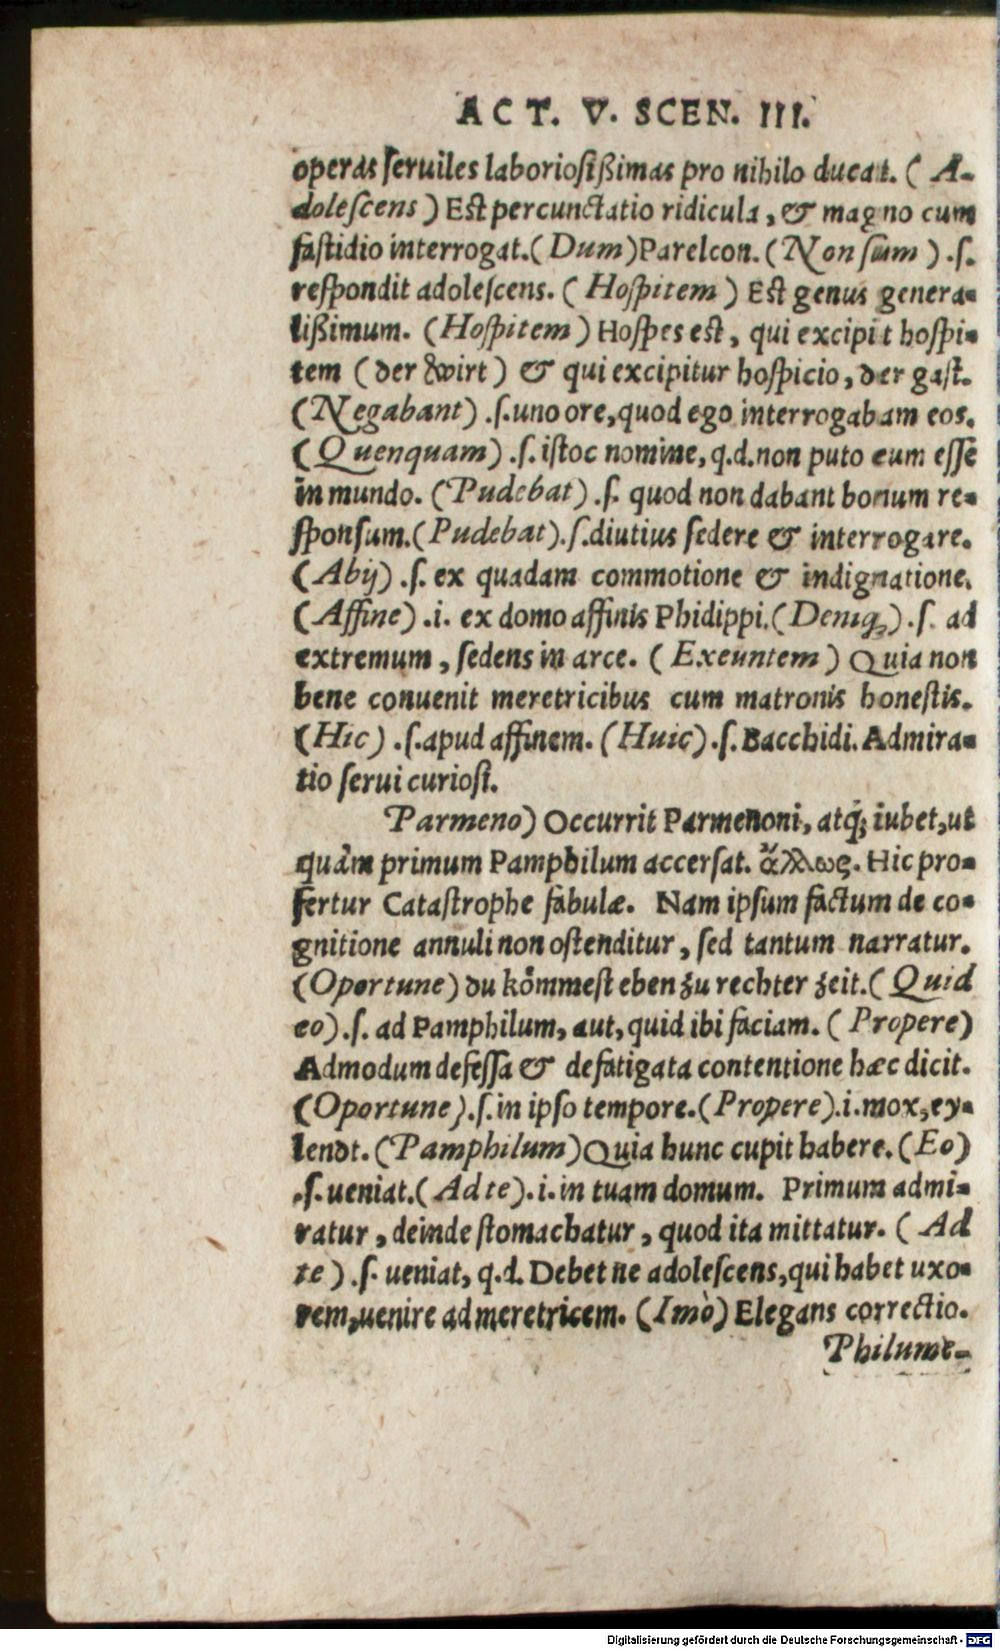 ACT. V. SCEN. III.
operas ſeruiles laborioſißimas pro nihilo ducat. ( A-
doleſcens ) Est percunctatio ridicula, & magno cum
faſtidio interrogat. ( Dum ) Parelcon. ( Non ſum ) .ſ.
reſpondit adoleſcens. ( Hoſpitem ) Est genus genera-
lißimum. (Hoſpitem ) Hoſpes est, qui excipit hoſpi-
tem ( der Wirt ) & qui excipitur hoſpicio, der gaſt.
(Negabant) .ſ. uno ore, quod ego interrogabam eos.
(Quenquam) .ſ. iſtoc nomine, q.d. non puto eum eſſe
in mundo. (Pudebat) .ſ. quod non dabant bonum re-
ſponſum. (Pudebat) .ſ. diutius ſedere & interrogare.
(Abij) .ſ. ex quadam commotione & indignatione.
(Affine) .i. ex domo affinis Phidippi. (Deniq;) .ſ. ad
extremum, ſedens in arce. ( Exeuntem ) Quia non
bene conuenit meretricibus cum matronis honeſtis.
(Hic) .ſ. apud affinem. (Huic) .ſ. Bacchidi. Admira-
tio ſerui curioſi.
Parmeno) Occurrit Parmenoni, atq́; iubet, ut
quàm primum Pamphilum accerſat. ἄλλως. Hic pro-
fertur Cataſtrophe fabulæ. Nam ipſum factum de co-
gnitione annuli non oſtenditur, ſed tantum narratur.
(Oportune) du kömmeſt eben zu rechter zeit. ( Quid
eo) .ſ. ad Pamphilum, aut, quid ibi faciam. ( Propere)
Admodum defeſſa & defatigata contentione hæc dicit.
(Oportune) .ſ. in ipſo tempore. (Propere) .i. mox, ey-
lendt. (Pamphilum) Quia hunc cupit habere. (Eo)
.ſ. ueniat. (Ad te) .i. in tuam domum. Primum admi-
ratur, deinde ſtomachatur, quod ita mittatur. ( Ad
te ) .ſ. ueniat, q.d. Debet ne adoleſcens, qui habet uxo-
rem, uenire ad meretricem. (Imò) Elegans correctio.
Philume-
Digitalisierung gefördert durch die Deutsche Forschungsgemeinschaft - DFG